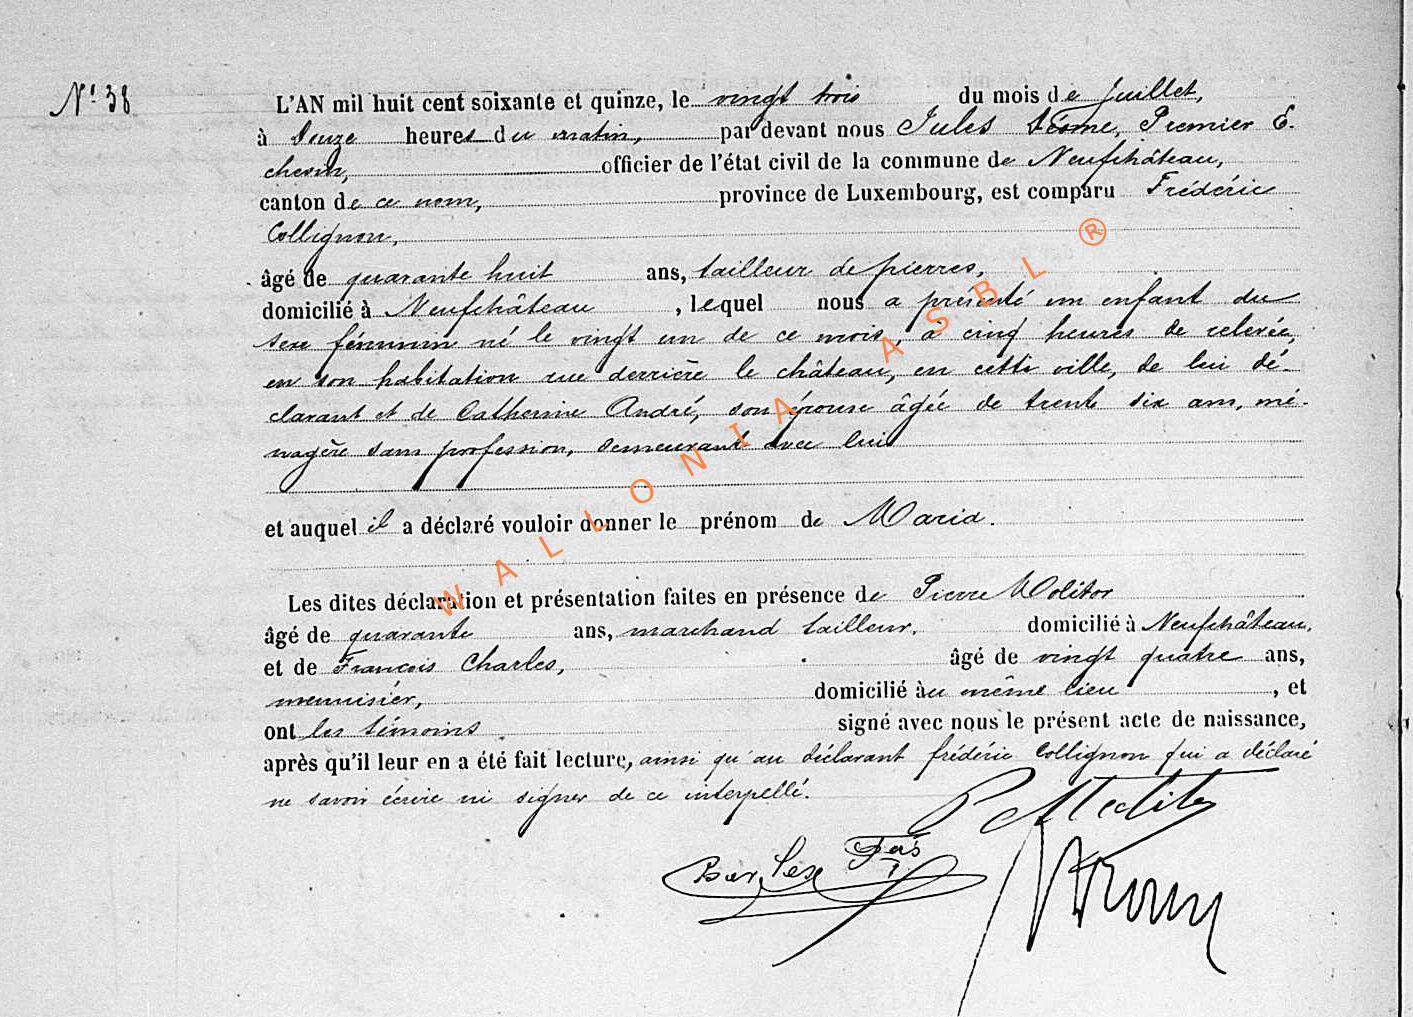 N° 38
L'AN mil huit cent soixante et quinze, le vingt trois du mois de Juillet,
à Douze heures du matin, par devant nous Jules Premier E-
chevin, officier de l'état civil de la commune de Neufchâteau,
canton de ce nom, province de Luxembourg, est comparu Frédéric
Collignon,
âgé de quarante huit ans, tailleur de pierres,
domicilié à Neufchâteau, lequel nous a présenté un enfant du
sexe féminin né le vingt un de ce mois, à cinq heures de relevée,
en son habitation rue derrière le château, en cette ville, de lui dé-
clarant et de Catherine André, son épouse âgée de trente six ans, mé-
nagère sans profession, demeurant avec lui
et auquel il a déclaré vouloir donner le prénom de Maria.
Les dites déclaration et présentation faites en présence de Pierre Molitor
âgé de quarante ans, marchand tailleur, domicilié à Neufchâteau,
et de François Charles, âgé de vingt quatre ans,
menuisier, domicilié au même lieu, et
ont les témoins signé avec nous le présent acte de naissance,
après qu'il leur en a été fait lecture, ainsi qu'au déclarant frédéric Collignon qui a déclaré
ne savoir écrire ni signer de ce interpellé.
WALLONIA ASBL ®